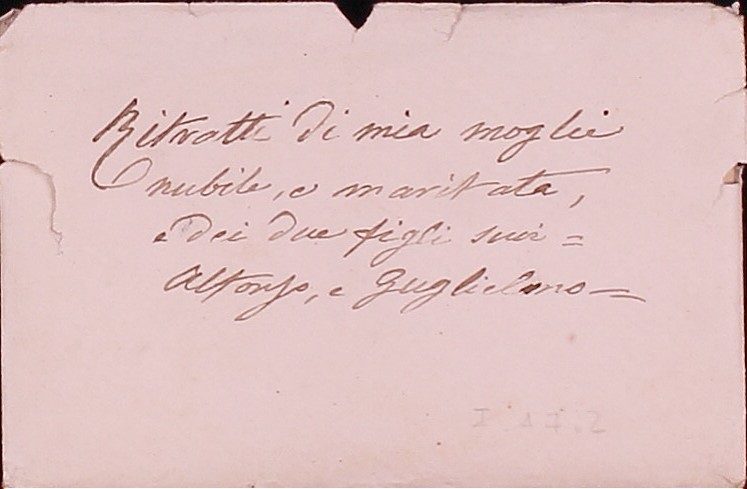 Ritratti di mia moglie
nubile, e maritata,
e dei due figli suoi =
Alfonso, e Guglielmo =